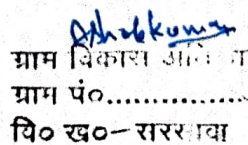 Ashok Kumar
ग्राम विकास
ग्राम पं०................
वि० ख०-सरसावा